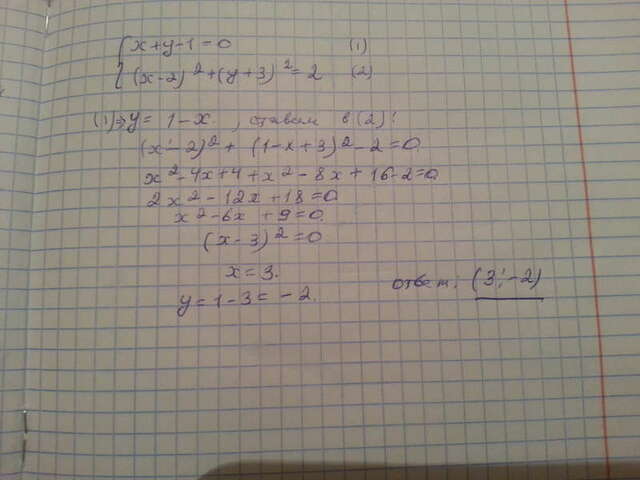 { x+y-1=0 (1)
(x-2)²+(y+3)²=2 (2)
(1)⇒y= 1-x. , ставим в (2):
(x-2)²+ (1-x+3)²-2=0
x²-4x+4+x²-8x+16-2=0
2x²-12x+18=0
x²-6x+9=0
(x-3)²=0
x=3.
y=1-3=-2.
ответ. (3;-2)